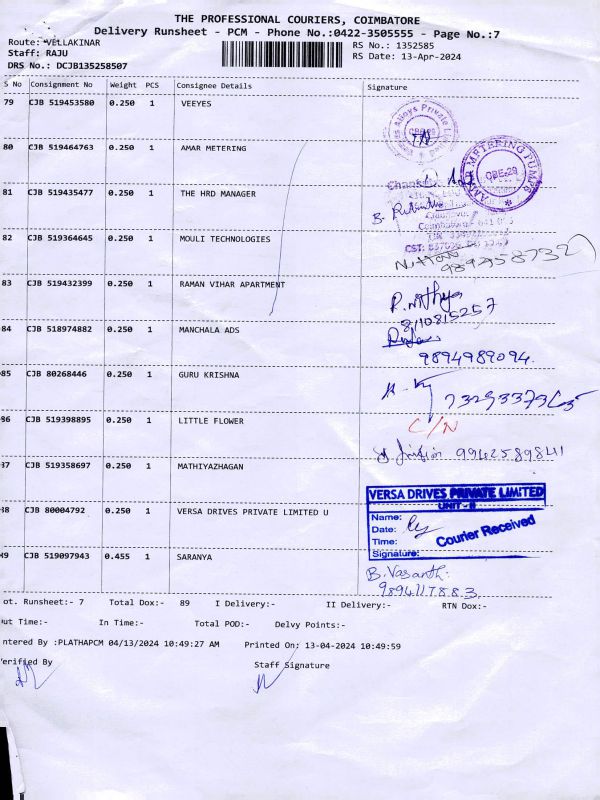 THE PROFESSIONAL COURIERS, COIMBATORE
Delivery Runsheet - PCM - Phone No.:0422-3505555 - Page No.:7
Route: VELLAKINAR
Staff: RAJU
DRS No.: DCJB135258507
RS No.: 1352585
RS Date: 13-Apr-2024
S No Consignment No Weight PCS Consignee Details Signature
79 CJB 519453580 0.250 1 VEEYES
80 CJB 519464763 0.250 1 AMAR METERING
AMAR METERING PUMPS
CBE-29
81 CJB 519435477 0.250 1 THE HRD MANAGER
82 CJB 519364645 0.250 1 MOULI TECHNOLOGIES
83 CJB 519432399 0.250 1 RAMAN VIHAR APARTMENT
P. Nithya
8110815257
84 CJB 518974882 0.250 1 MANCHALA ADS
9894989094.
85 CJB 80268446 0.250 1 GURU KRISHNA
86 CJB 519398895 1 0.250 LITTLE FLOWER
C/N
37 CJB 519358697 0.250 1 MATHIYAZHAGAN
9962589841
38 CJB 80004792 0.250 1 VERSA DRIVES PRIVATE LIMITED U
VERSA DRIVES PRIVATE LIMITED
UNIT - II
Name:
Date:
Time:
Signature:
Courier Received
39 CJB 519097943 0.455 1 SARANYA
B. Vasanth:
9894117883
ot. Runsheet:- 7 Total Dox:- 89 I Delivery:- II Delivery:- RTN Dox:-
ut Time:- In Time:- Total POD:- Delvy Points:-
ntered By :PLATHAPCM 04/13/2024 10:49:27 AM Printed On: 13-04-2024 10:49:59
erified By Staff Signature